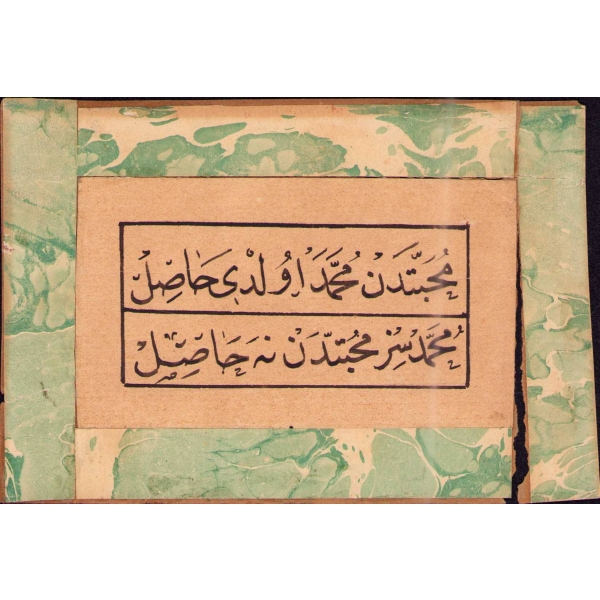 مُحَبَّتدَنْ مُحَمَّدَ اوُلدْى حَاصِلْ
مُحَمَّدْسِزْ مُحَبَّتدَنْ نَه حَاصِلْ